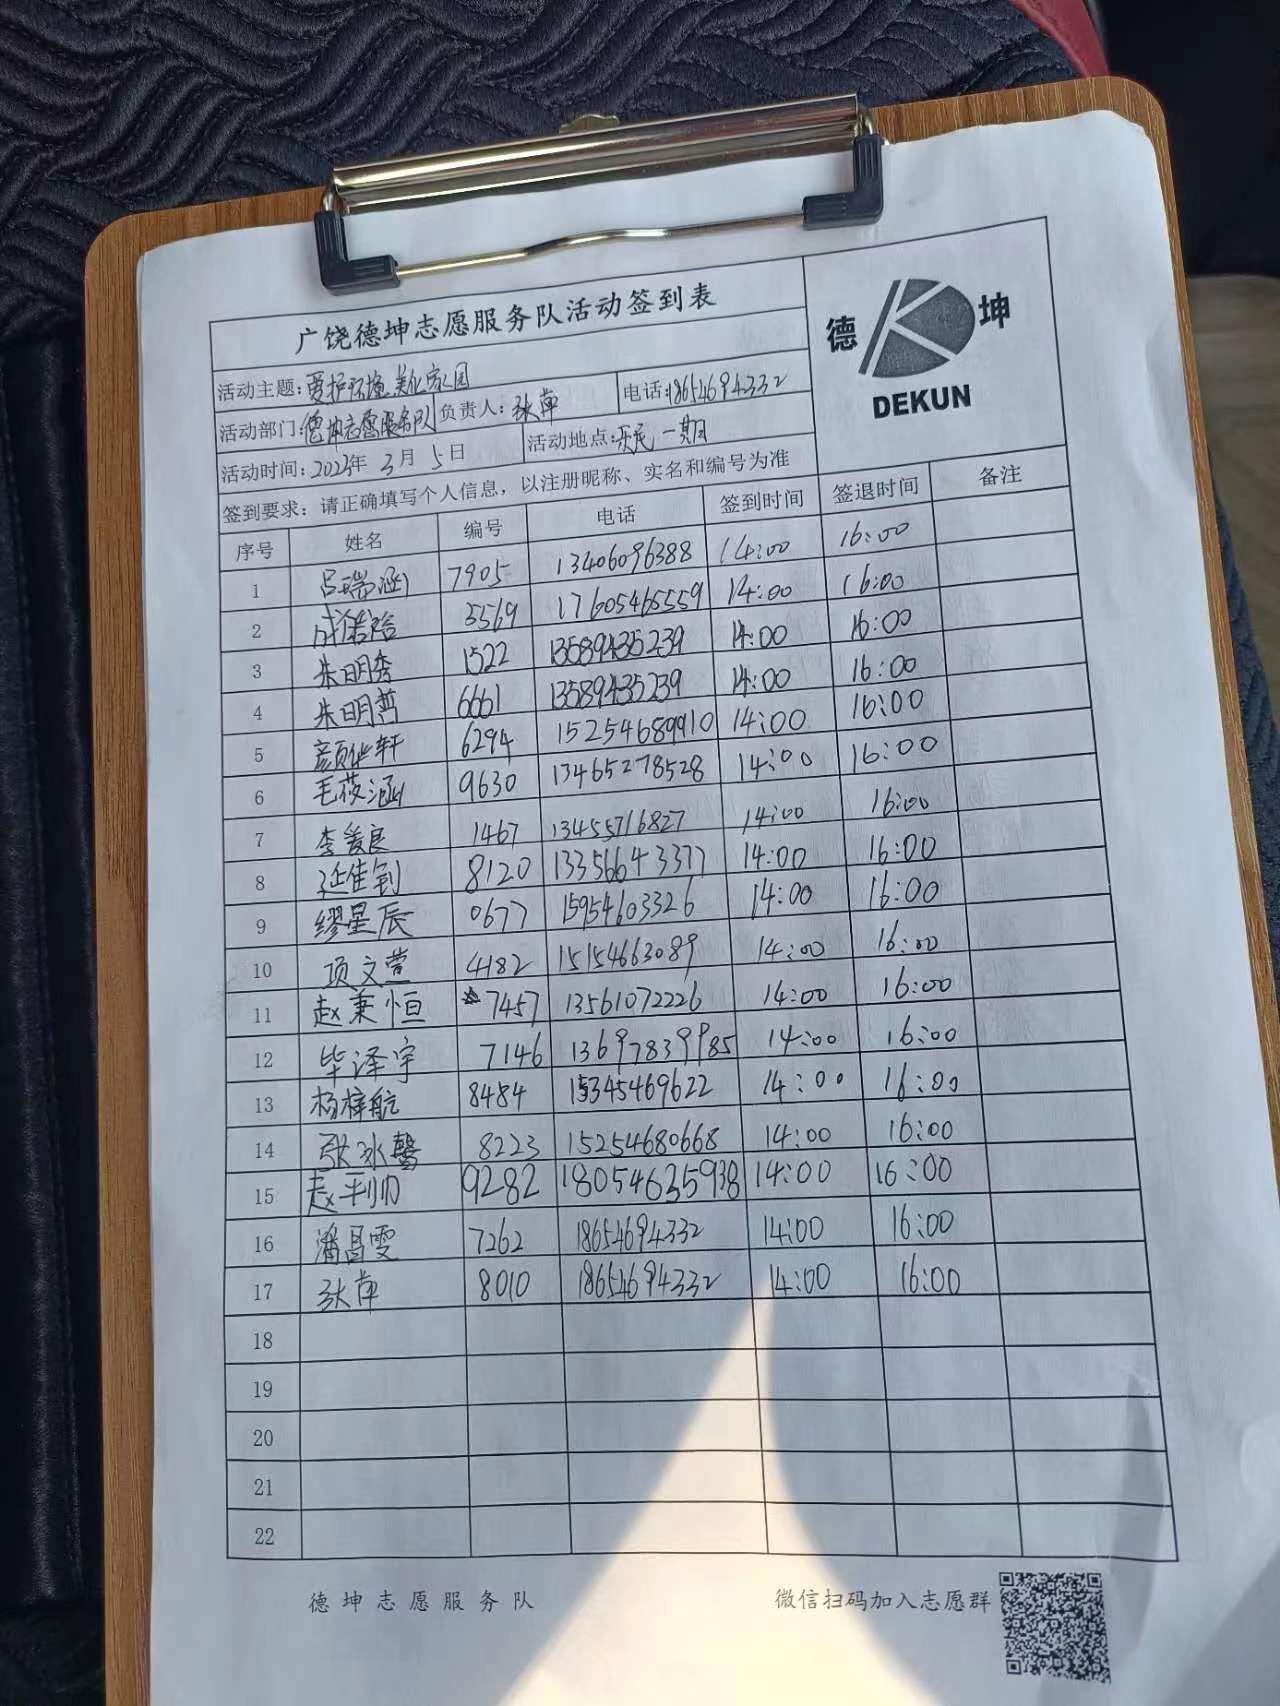 广饶德坤志愿服务队活动签到表
德 坤
DEKUN
活动主题:爱护环境 美化家园
活动部门:德坤志愿服务队 负责人:张 电话:18654694332
活动时间:2023年 3月 5日 活动地点: 一期
签到要求:请正确填写个人信息,以注册昵称、实名和编号为准
序号 姓名 编号 电话 签到时间 签退时间 备注
1 吕瑞涵 7905 13406096388 14:00 16:00
2 成 5569 17605465559 14:00 16:00
3 朱明秀 1522 13589435239 14:00 16:00
4 朱明 6661 13589435239 14:00 16:00
5 颜 轩 6294 15254689910 14:00 16:00
6 毛莜涵 9630 13465278528 14:00 16:00
7 李爰良 1467 13455716827 14:00 16:00
8 延佳钊 8120 13356643377 14:00 16:00
9 缪星辰 0677 15954603326 14:00 16:00
10 项文萱 4182 15154663089 14:00 16:00
11 赵秉恒 7457 13561072226 14:00 16:00
12 毕泽宇 7146 13697839985 14:00 16:00
13 杨梓航 8484 15345469622 14:00 16:00
14 张冰馨 8223 15254680668 14:00 16:00
15 赵利帅 9282 18054635938 14:00 16:00
16 潘昌雯 7262 18654694332 14:00 16:00
17 张 8010 18654694332 14:00 16:00
18
19
20
21
22
德坤志愿服务队 微信扫码加入志愿群